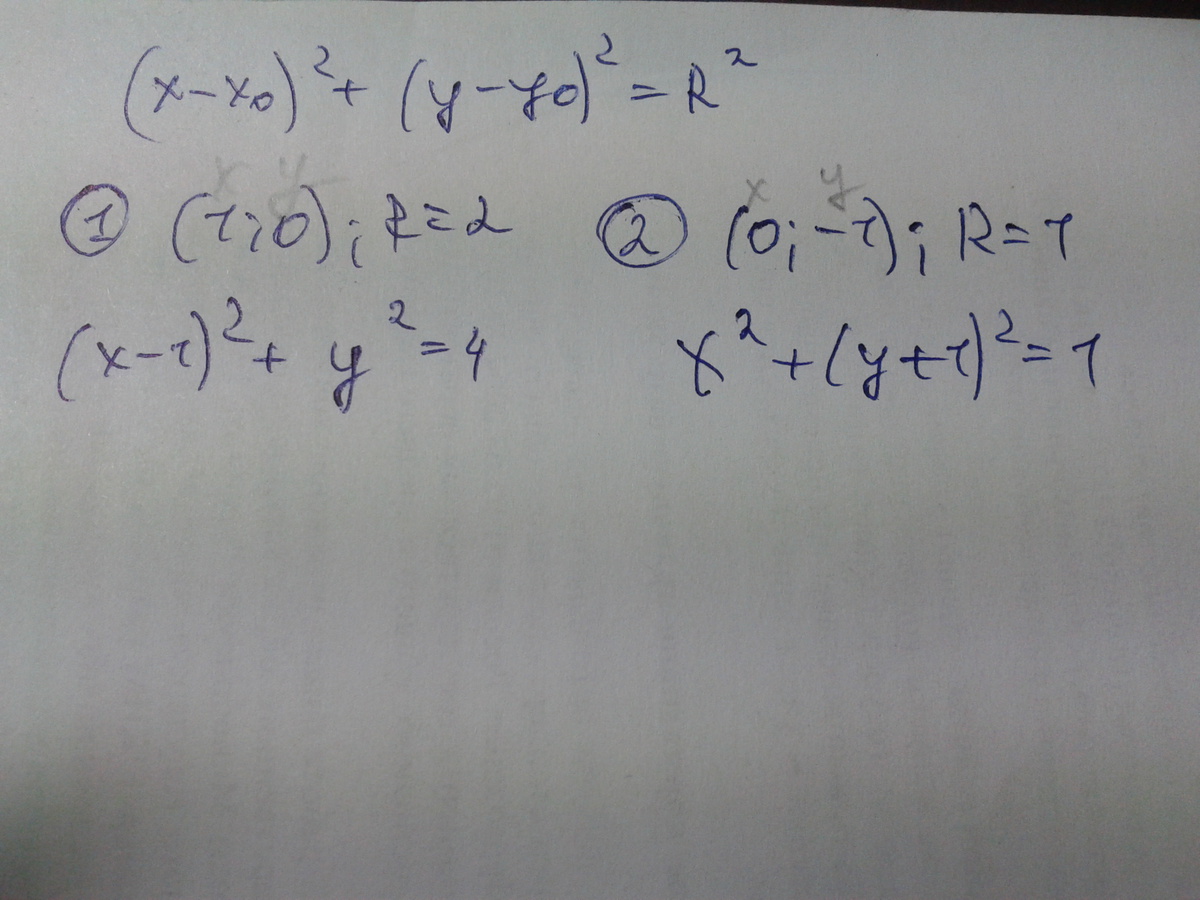 (x-x₀)² + (y-y₀)² = R²
x y x y
① (1;0); R=2 ② (0;-1); R=1
(x-1)² + y² = 4 x² + (y+1)² = 1